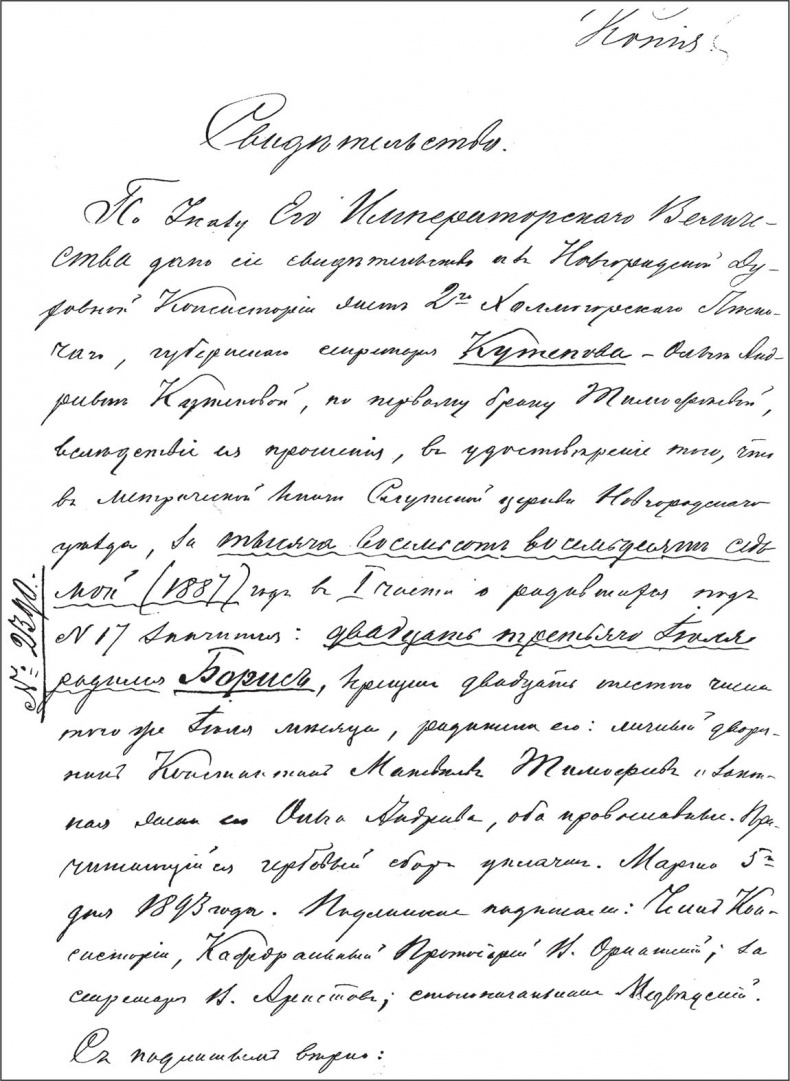 Копія
Свидѣтельство.
По Указу Его Императорскаго Величе-
ства дано сіе свидѣтельство изъ Новгородской Ду-
ховной Консисторіи женѣ 2го Холмогорскаго Лѣсни-
чаго, губернскаго секретаря Кутепова - Ольгѣ Анд-
реевнѣ Кутеповой, по первому браку Тимофеевой,
вслѣдствіе ея прошенія, въ удостовѣреніе того, что
въ метрической книгѣ церкви Новгородскаго
уѣзда, за тысяча восемьсотъ восемьдесятъ седь
мой (1887) годъ въ I части о родившихся подъ
N 17 значится: двадцать третьяго Іюля
родился Борисъ, крещенъ двадцать шестого числа
того же Іюля мѣсяца, родители его: личный дворя-
нинъ Константинъ Тимофеевъ и закон-
ная жена его Ольга Андреева, оба православные. При-
читающійся гербовый сборъ уплаченъ. Марта 5го
дня 1893 года. Подлинное подписали: Членъ Кон-
систоріи, Кафедральный Протоіерей В. Орнатскій; за
секретаря В. Аристовъ; столоначальникъ Медвѣдскій.
Съ подлиннымъ вѣрно:
№ 2390.